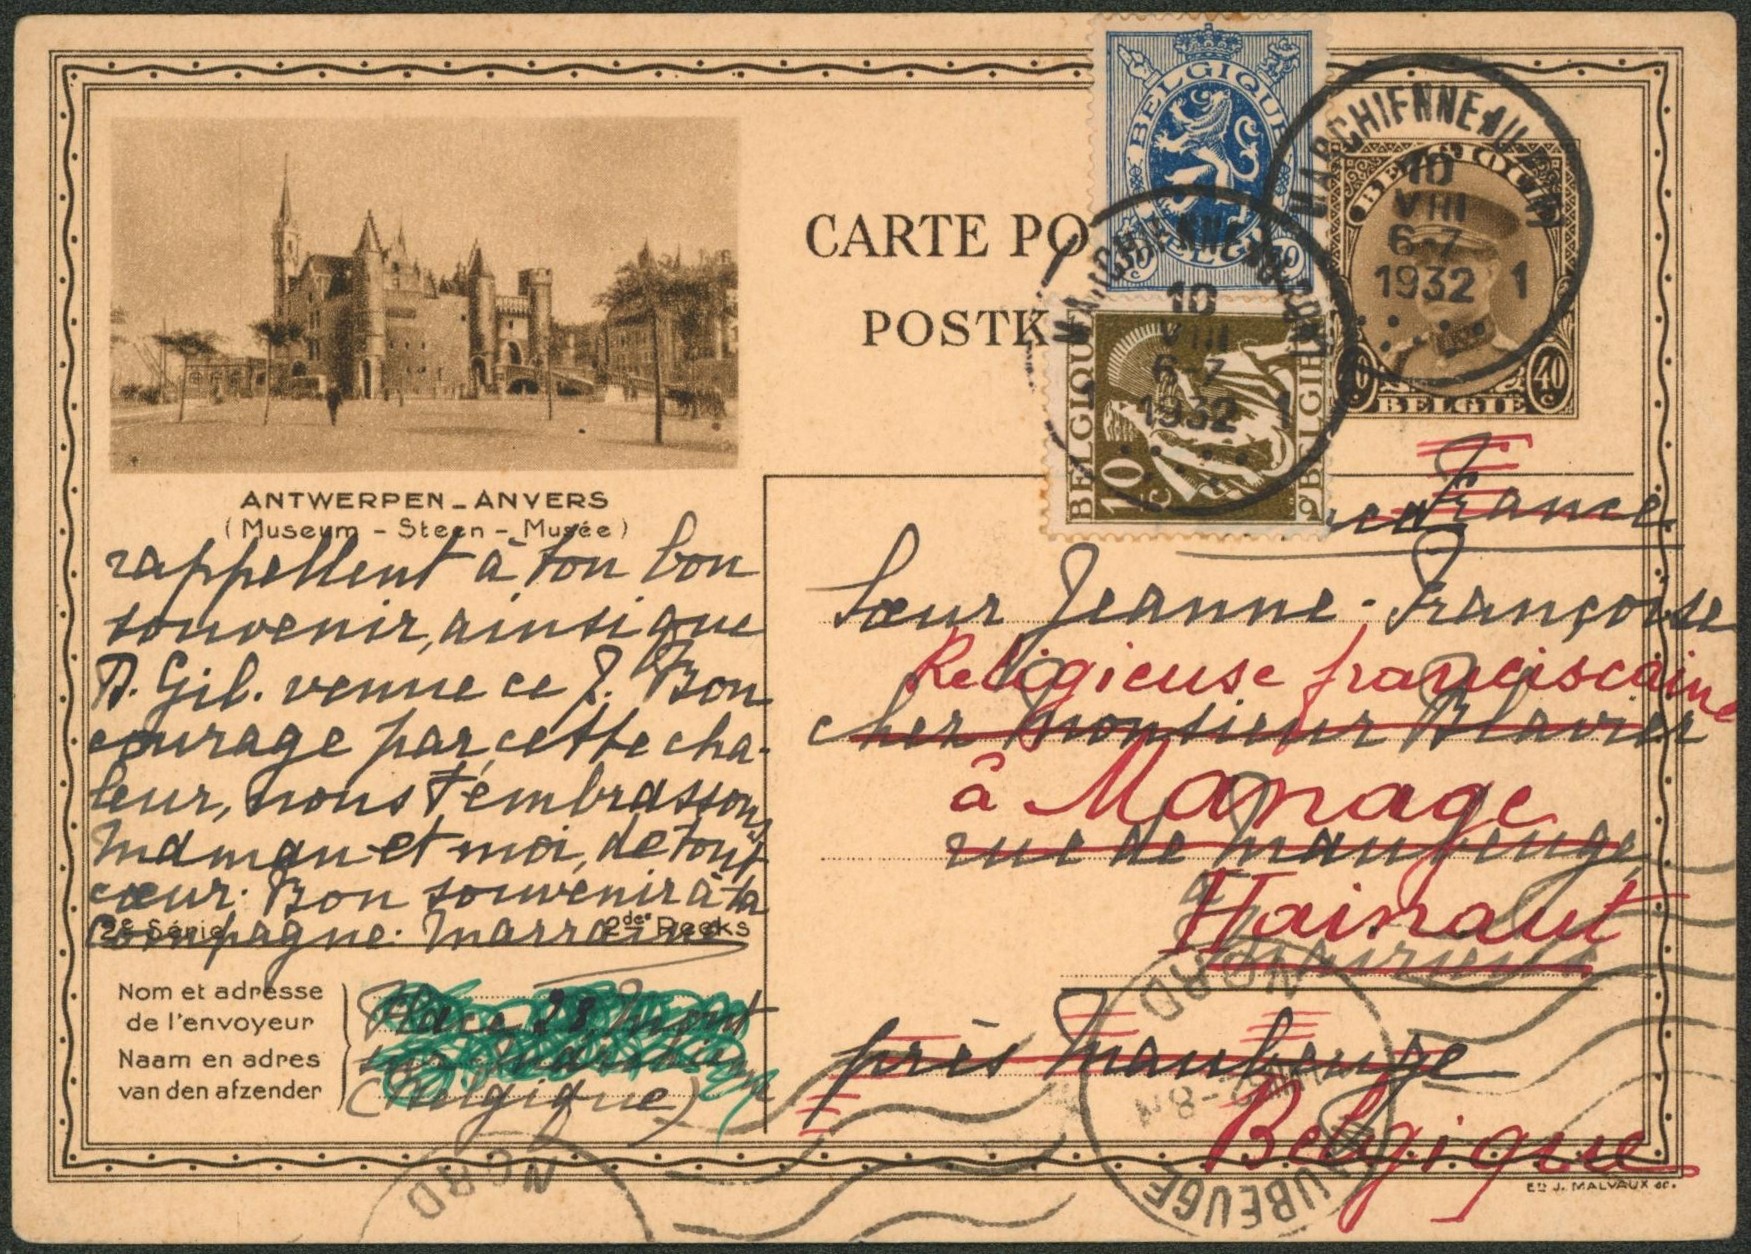 CARTE PO
POSTK
BELGIQUE
BELGIË
50 c
BELGIQUE
BELGIË
10 c
BELGIQUE
BELGIE
40 c
MARCHIENNE-AU-PONT
10
VIII
6-7
1932
1
MARCHIENNE-AU-PONT
10
VIII
6-7
1932
1
ANTWERPEN - ANVERS
(Museum - Steen - Musée)
rappellent à ton bon
souvenir, ainsi que
B. Gil. venue ce J. Bon
courage par cette cha-
leur, nous t'embrassons
maman et moi, de tout
cœur. Bon souvenir à ta
compagne. Marraine
2e Série 2de Reeks
Nom et adresse
de l'envoyeur
Naam en adres
van den afzender
Place 28 Mont
sur Marchienne
(Belgique)
France
Sœur Jeanne-Françoise
Religieuse franciscaine
chez Monsieur Blavier
à Manage
rue de Maubeuge
Hainaut
près Maubeuge
Belgique
MAUBEUGE
NORD
NORD
Ed. J. MALVAUX